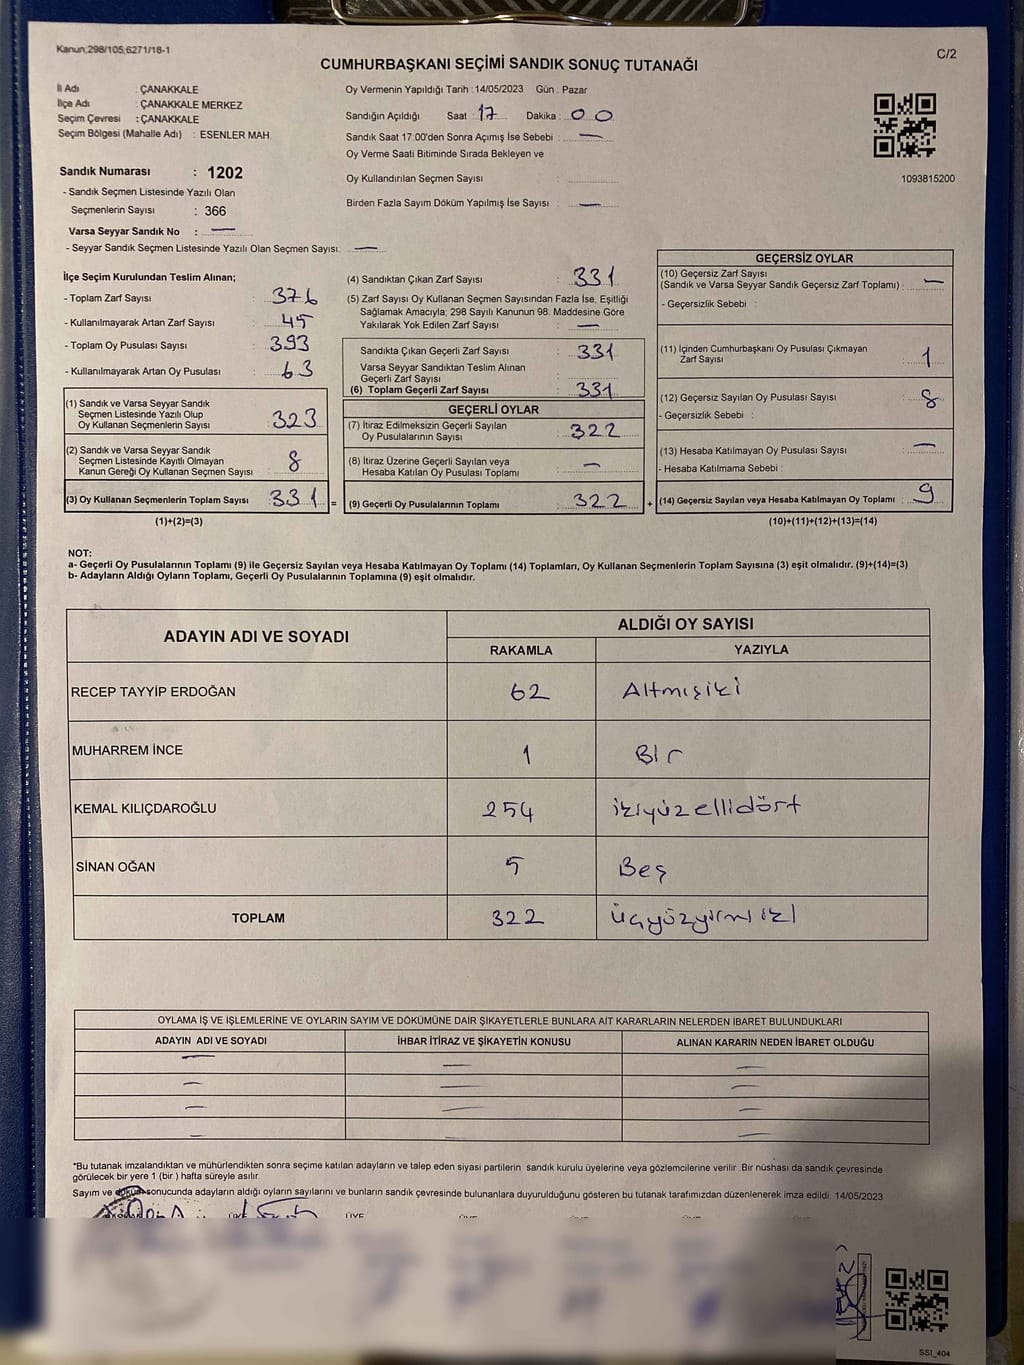 Kanun;298/105,6271/18-1
C/2
CUMHURBAŞKANI SEÇİMİ SANDIK SONUÇ TUTANAĞI
İl Adı : ÇANAKKALE
İlçe Adı : ÇANAKKALE MERKEZ
Seçim Çevresi : ÇANAKKALE
Seçim Bölgesi (Mahalle Adı) : ESENLER MAH.
Oy Vermenin Yapıldığı Tarih : 14/05/2023 Gün : Pazar
Sandığın Açıldığı Saat : 17 Dakika : 00
Sandık Saat 17.00'den Sonra Açımış İse Sebebi : —
Oy Verme Saati Bitiminde Sırada Bekleyen ve
Oy Kullandırılan Seçmen Sayısı :
Birden Fazla Sayım Döküm Yapılmış İse Sayısı : —
1093815200
Sandık Numarası : 1202
- Sandık Seçmen Listesinde Yazılı Olan
Seçmenlerin Sayısı : 366
Varsa Seyyar Sandık No : —
- Seyyar Sandık Seçmen Listesinde Yazılı Olan Seçmen Sayısı: —
İlçe Seçim Kurulundan Teslim Alınan;
- Toplam Zarf Sayısı : 376
- Kullanılmayarak Artan Zarf Sayısı : 45
- Toplam Oy Pusulası Sayısı : 393
- Kullanılmayarak Artan Oy Pusulası : 63
(1) Sandık ve Varsa Seyyar Sandık
Seçmen Listesinde Yazılı Olup
Oy Kullanan Seçmenlerin Sayısı : 323
(2) Sandık ve Varsa Seyyar Sandık
Seçmen Listesinde Kayıtlı Olmayan
Kanun Gereği Oy Kullanan Seçmen Sayısı : 8
(3) Oy Kullanan Seçmenlerin Toplam Sayısı : 331 =
(1)+(2)=(3)
(4) Sandıktan Çıkan Zarf Sayısı : 331
(5) Zarf Sayısı Oy Kullanan Seçmen Sayısından Fazla İse, Eşitliği
Sağlamak Amacıyla; 298 Sayılı Kanunun 98. Maddesine Göre
Yakılarak Yok Edilen Zarf Sayısı : —
Sandıkta Çıkan Geçerli Zarf Sayısı : 331
Varsa Seyyar Sandıktan Teslim Alınan
Geçerli Zarf Sayısı :
(6) Toplam Geçerli Zarf Sayısı : 331
GEÇERLİ OYLAR
(7) İtiraz Edilmeksizin Geçerli Sayılan
Oy Pusulalarının Sayısı : 322
(8) İtiraz Üzerine Geçerli Sayılan veya
Hesaba Katılan Oy Pusulası Toplamı : —
(9) Geçerli Oy Pusulalarının Toplamı : 322 +
GEÇERSİZ OYLAR
(10) Geçersiz Zarf Sayısı
(Sandık ve Varsa Seyyar Sandık Geçersiz Zarf Toplamı) : —
- Geçersizlik Sebebi :
(11) İçinden Cumhurbaşkanı Oy Pusulası Çıkmayan
Zarf Sayısı : 1
(12) Geçersiz Sayılan Oy Pusulası Sayısı : 8
- Geçersizlik Sebebi :
(13) Hesaba Katılmayan Oy Pusulası Sayısı : —
- Hesaba Katılmama Sebebi :
(14) Geçersiz Sayılan veya Hesaba Katılmayan Oy Toplamı : 9
(10)+(11)+(12)+(13)=(14)
NOT:
a- Geçerli Oy Pusulalarının Toplamı (9) ile Geçersiz Sayılan veya Hesaba Katılmayan Oy Toplamı (14) Toplamları, Oy Kullanan Seçmenlerin Toplam Sayısına (3) eşit olmalıdır. (9)+(14)=(3)
b- Adayların Aldığı Oyların Toplamı, Geçerli Oy Pusulalarının Toplamına (9) eşit olmalıdır.
ADAYIN ADI VE SOYADI ALDIĞI OY SAYISI
RAKAMLA YAZIYLA
RECEP TAYYİP ERDOĞAN 62 Altmışiki
MUHARREM İNCE 1 Bir
KEMAL KILIÇDAROĞLU 254 ikiyüzellidört
SİNAN OĞAN 5 Beş
TOPLAM 322 üçyüzyirmiiki
OYLAMA İŞ VE İŞLEMLERİNE VE OYLARIN SAYIM VE DÖKÜMÜNE DAİR ŞİKAYETLERLE BUNLARA AİT KARARLARIN NELERDEN İBARET BULUNDUKLARI
ADAYIN ADI VE SOYADI İHBAR İTİRAZ VE ŞİKAYETİN KONUSU ALINAN KARARIN NEDEN İBARET OLDUĞU
— — —
— — —
— — —
— — —
*Bu tutanak imzalandıktan ve mühürlendikten sonra seçime katılan adayların ve talep eden siyasi partilerin sandık kurulu üyelerine veya gözlemcilerine verilir. Bir nüshası da sandık çevresinde
görülecek bir yere 1 (bir) hafta süreyle asılır.
Sayım ve döküm sonucunda adayların aldığı oyların sayılarını ve bunların sandık çevresinde bulunanlara duyurulduğunu gösteren bu tutanak tarafımızdan düzenlenerek imza edildi. 14/05/2023
ÜYE ÜYE
SSI_404